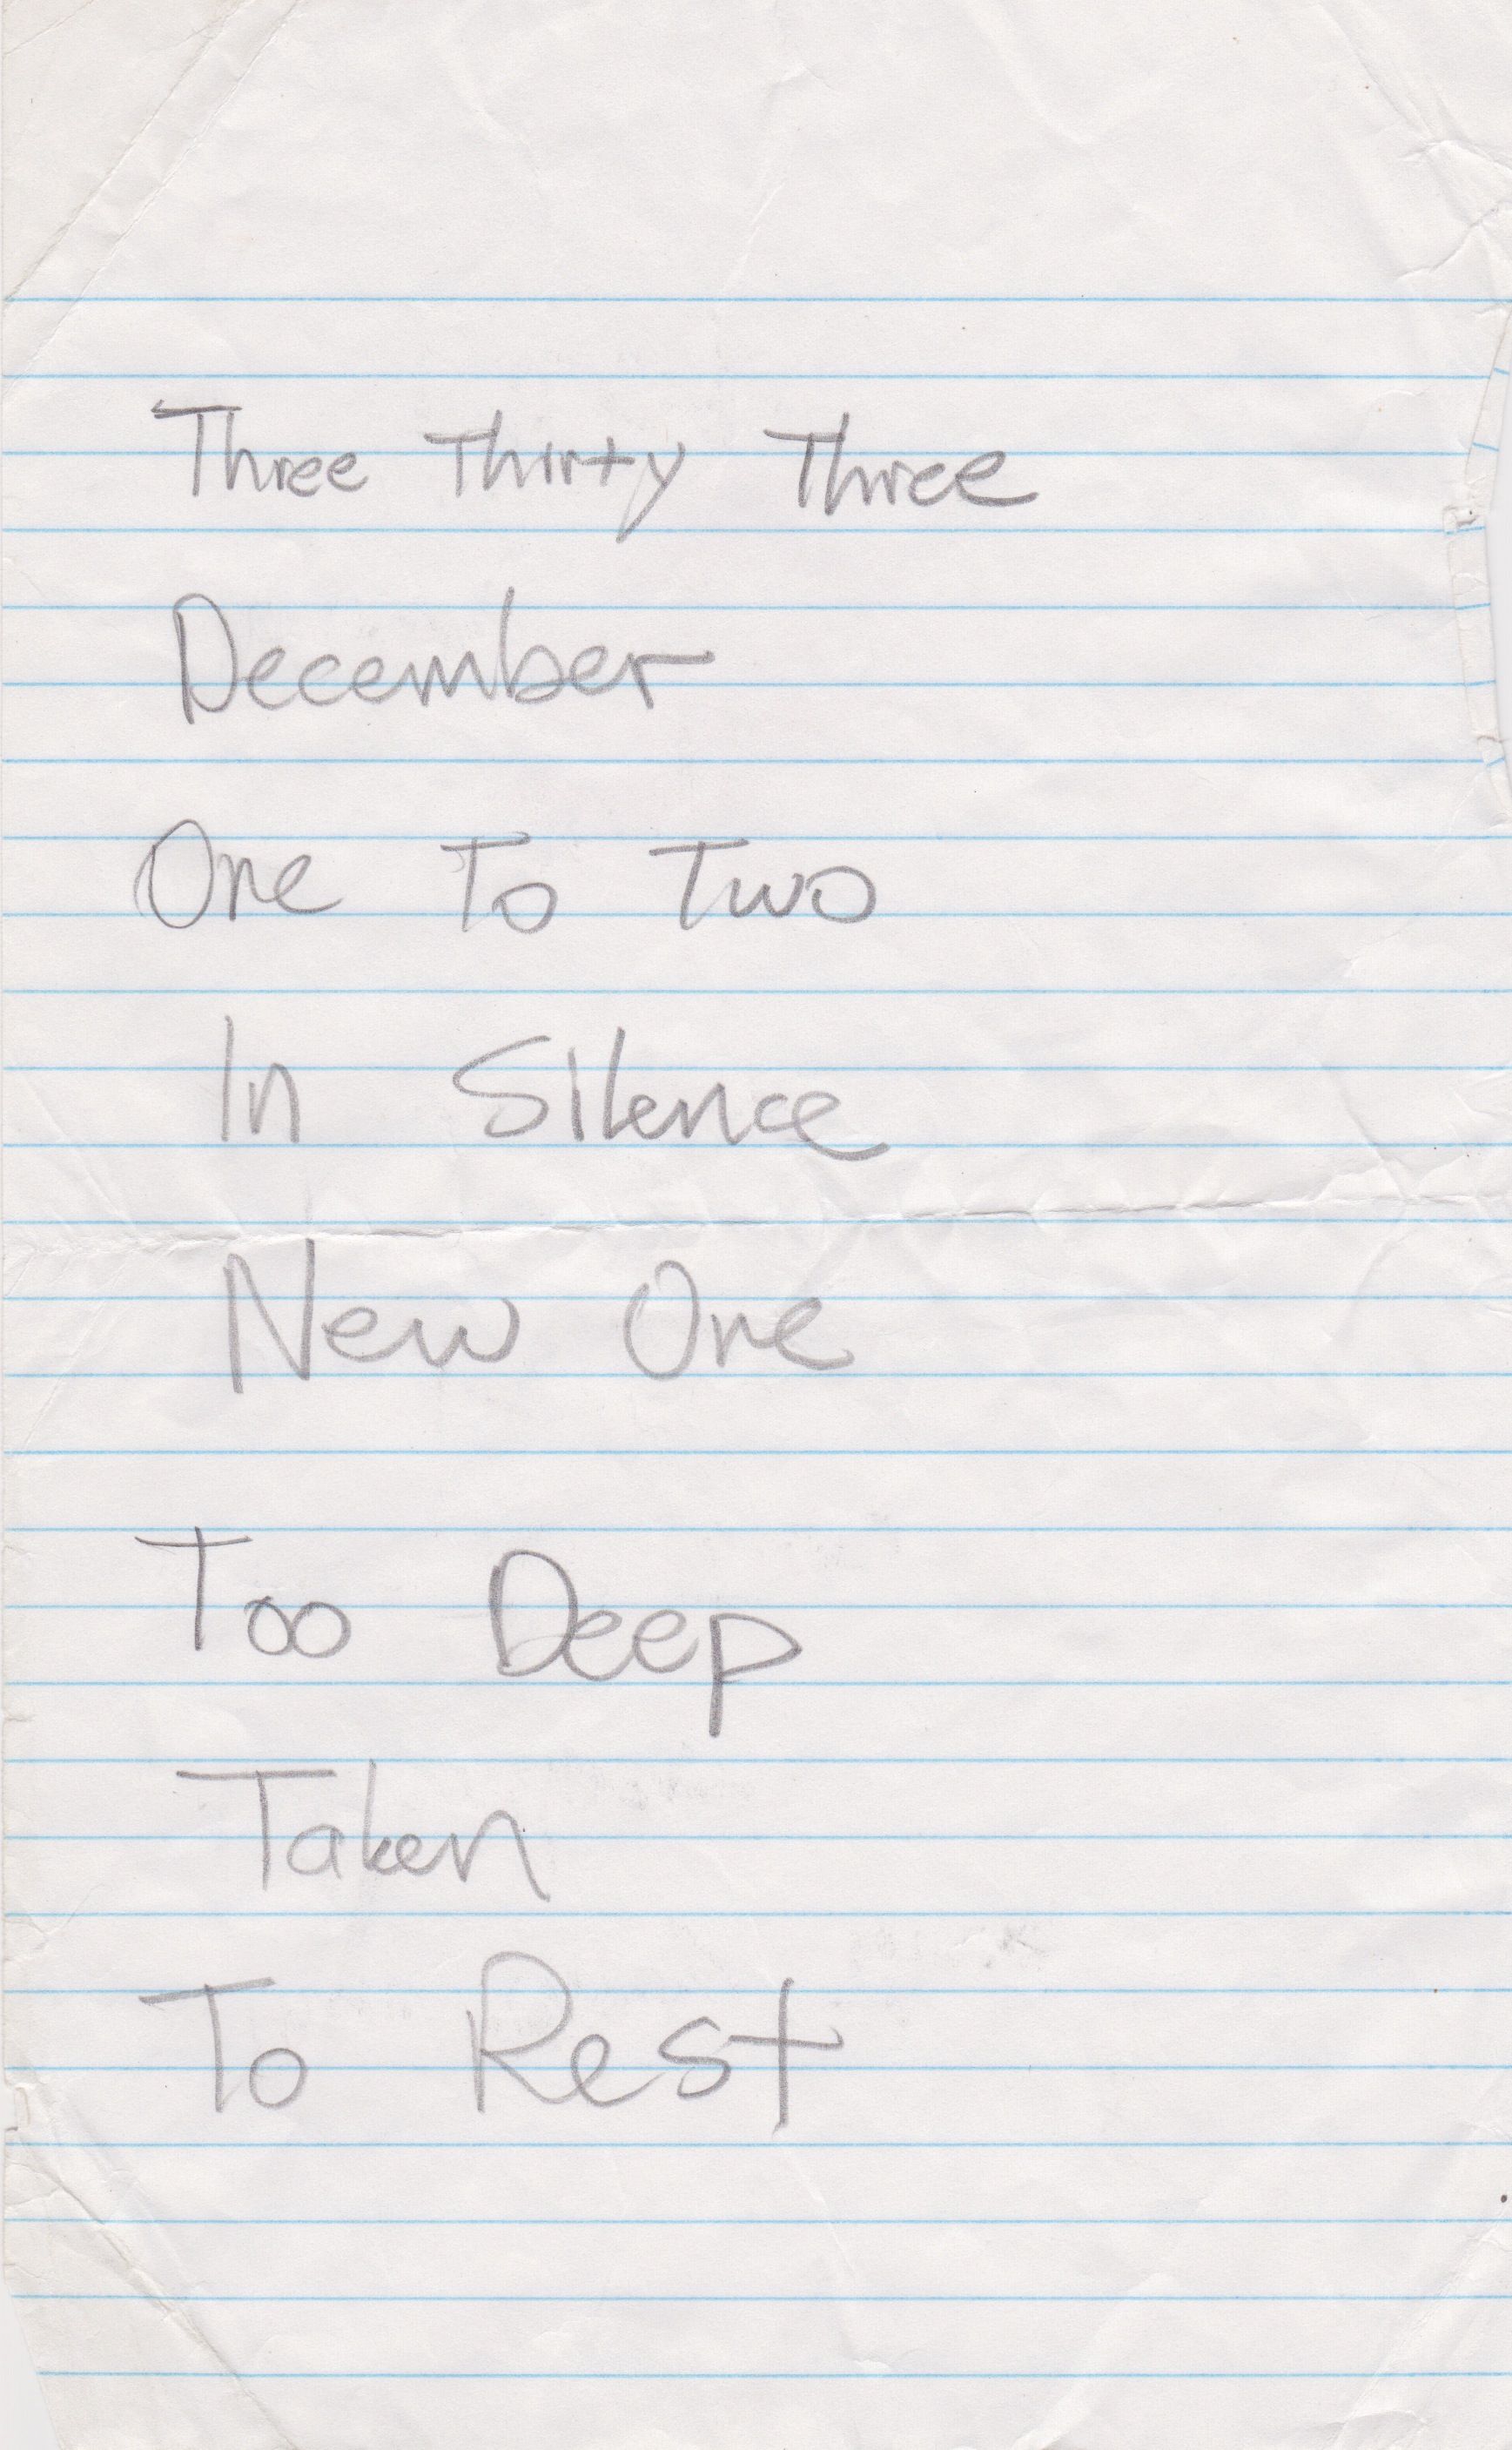 Three Thirty Three
December
One To Two
In Silence
New One
Too Deep
Taken
To Rest